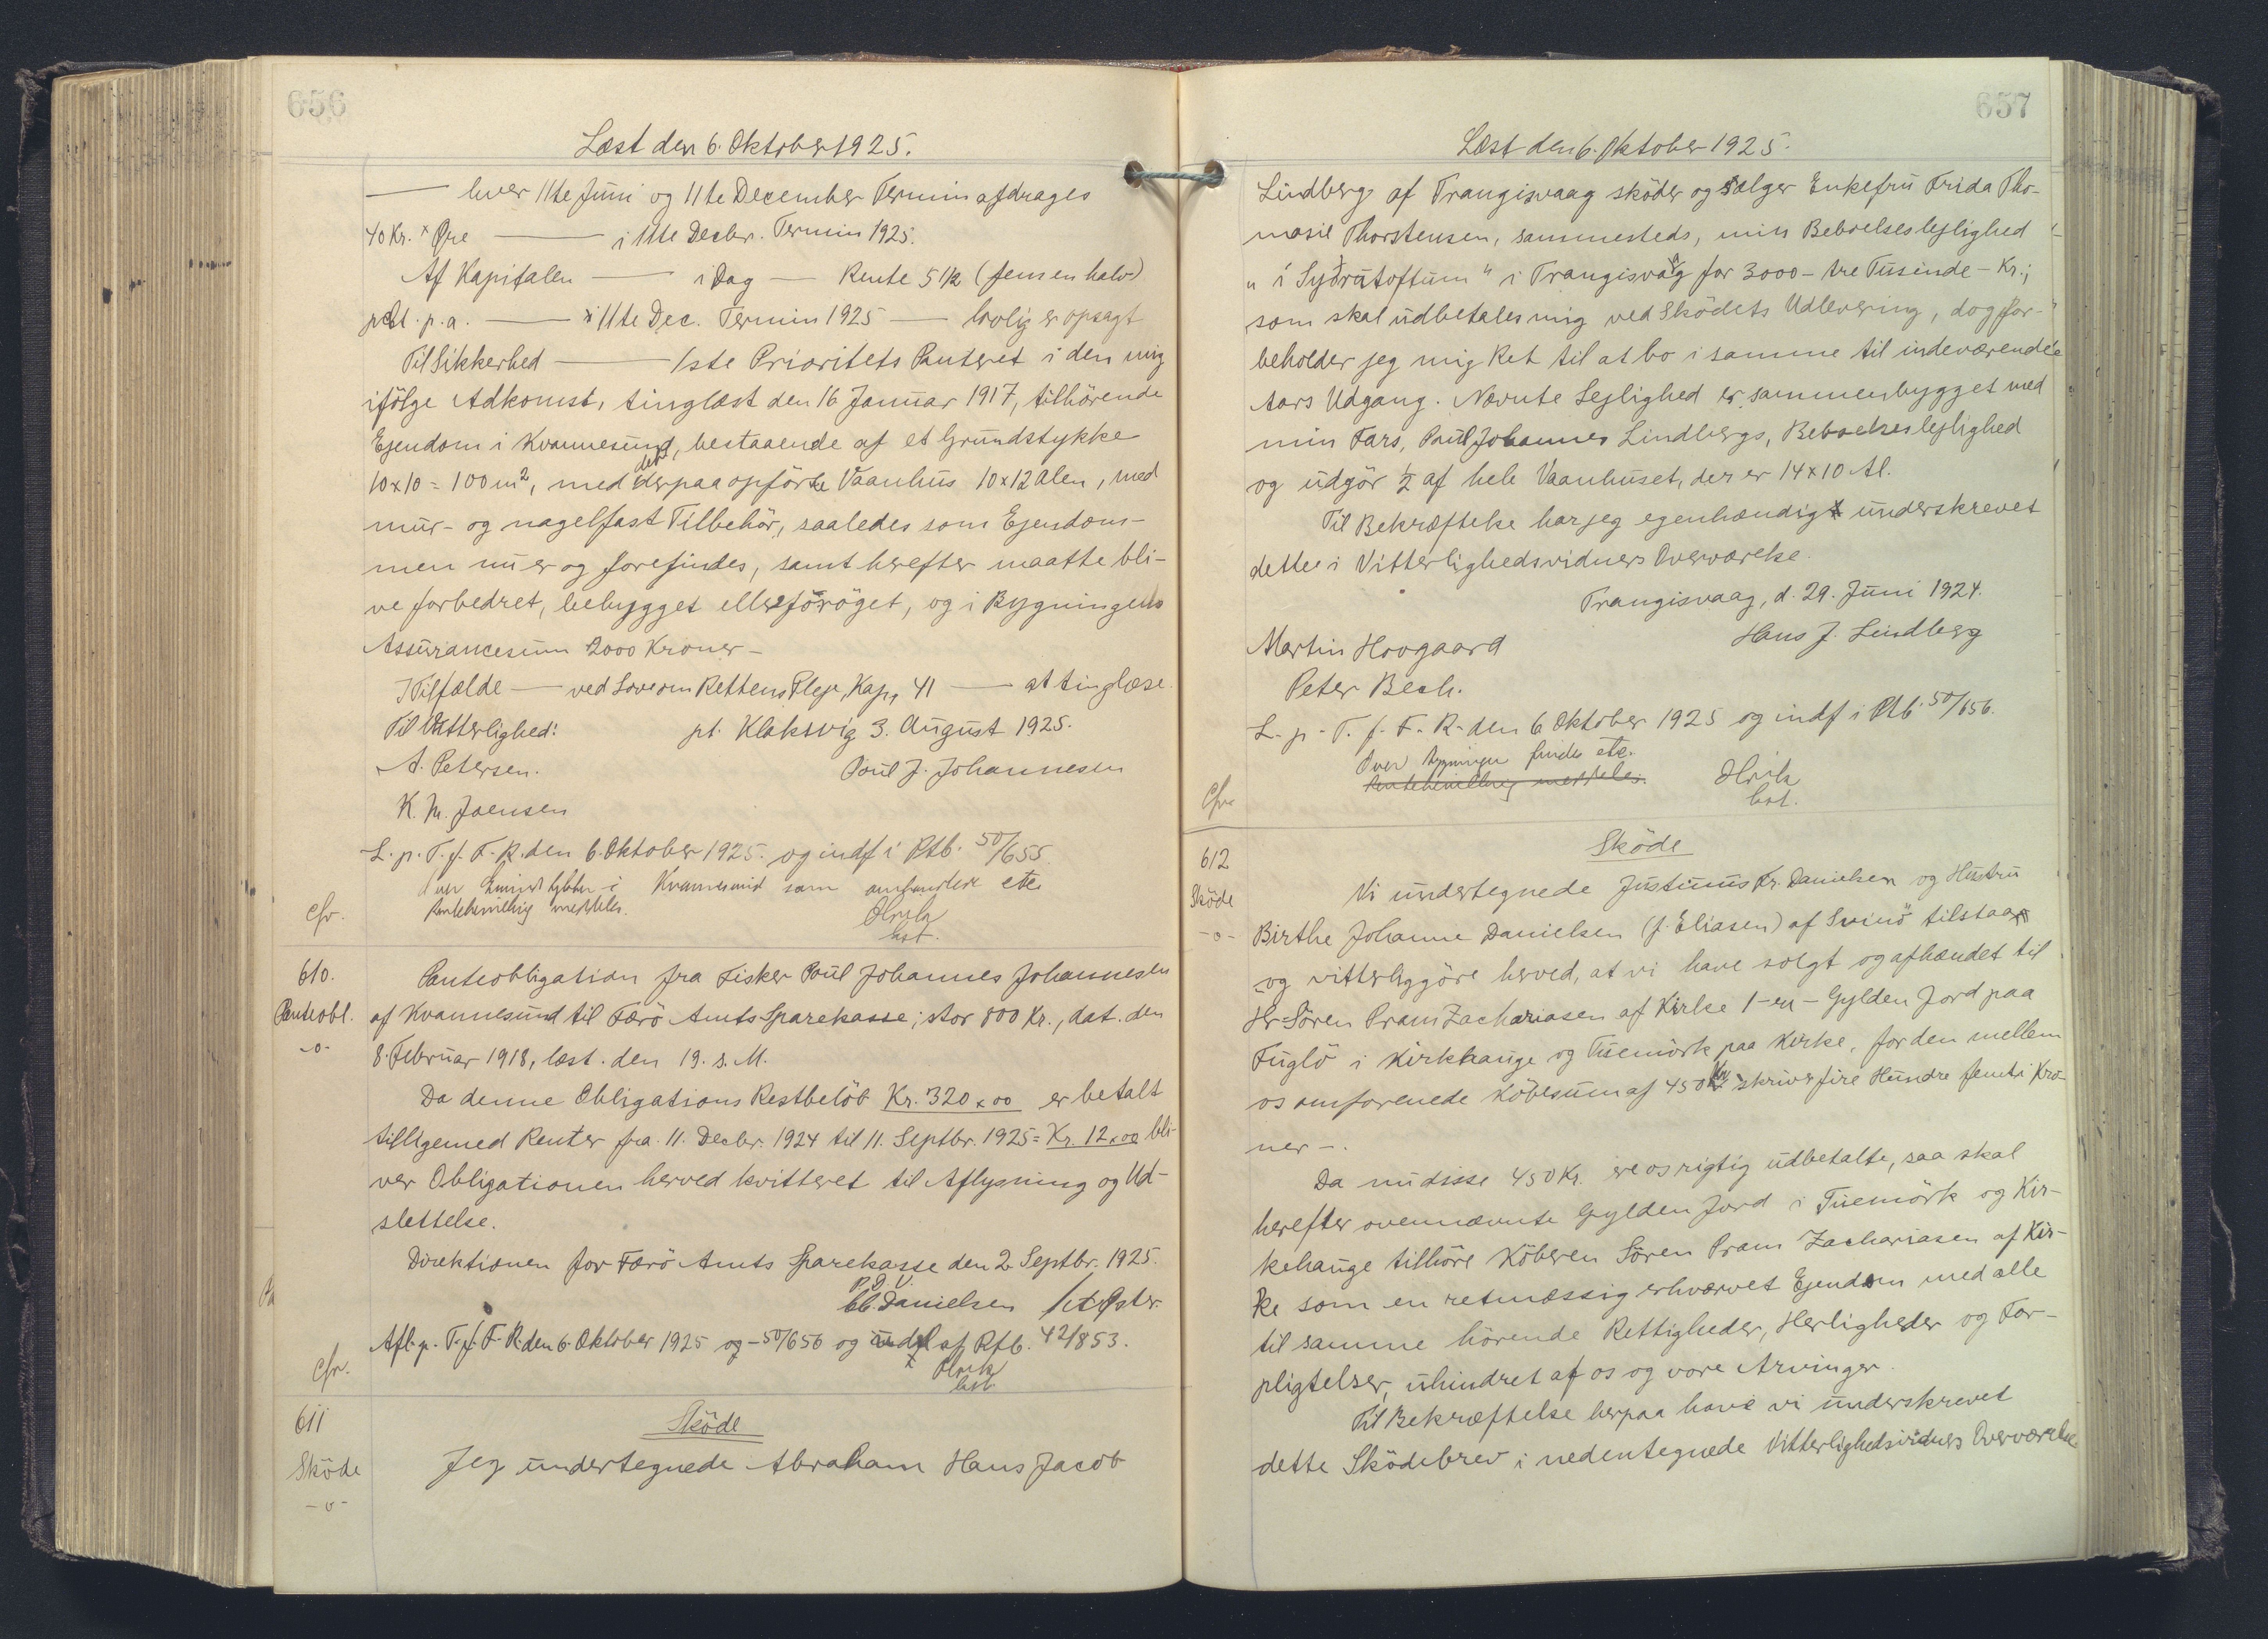 656
Læst den 6. Oktober 1925.
— hver 11te Juni og 11te December Termin afdrages
40 Kr. x Øre — i 11te Decbr. Termin 1925.
Af Kapitalen — i Dag — Rente 5 1/2 (fem en halv)
pCt. p.a. — i 11te Dec. Termin 1925 — lovlig er opsagt
Til Sikkerhed — 1ste Prioritets Panteret i den mig
ifölge Adkomst, tinglæst den 16 Januar 1917, tilhörende
Ejendom i Kvannesund, bestaaende af et Grundstykke
10 x 10 = 100 m2, med det derpaa opförte Vaanhus 10 x 12 Alen, med
mur- og nagelfast Tilbehör, saaledes som Ejendom-
men nu er og forefindes, samt herefter maatte bli-
ve forbedret, bebygget eller forøget, og i Bygningens
Assurancesum 2000 Kroner -
I Tilfælde — ved Lov om Rettens Pleje, Kap. 41 — at tinglæse.
Til Vitterlighed: pt. Klaksvig 3. August 1925.
A. Petersen. Poul J. Johannesen
K. M. Joensen
L. p. T. f. F. R. den 6. Oktober 1925. og indf i Ptb. 50/655.
i Kvannesund som etc.
Cfr. meddeles.
hst.
610. Panteobligation fra Fisker Poul Johannes Johannesen
Panteobl. af Kvannesund til Færö Amts Sparekasse; stor 800 Kr., dat. den
-o- 8. Februar 1918, læst. den 19. s. M.
Da denne Obligations Restbelöb Kr. 320 x 00 er betalt
tilligemed Renter fra 11. Decbr. 1924 til 11. Septbr. 1925 = Kr. 12 x 00 bli-
ver Obligationen herved kvitteret til Aflysning og Ud-
slettelse.
Direktionen for Færö Amts Sparekasse den 2. Septbr. 1925.
P. D. V.
Danielsen
Afl. p. T. f. F. R. den 6. Oktober 1925 og - 50/656 og af Ptb. 42/853.
Cfr. hst.
611 Sköde
Sköde Jeg undertegnede Abraham Hans Jacob
-o-
657
Læst den 6. Oktober 1925.
Lindberg af Trangisvaag sköder og sælger Enkefru Frida Tho-
masie Thorstensen, sammesteds, min Beboelseslejlighed
"í Sydratoftum" i Trangisvaag for 3000 - tre Tusinde - Kr.;
som skal udbetales mig ved Skødets Udlevering, dog for-
beholder jeg mig Ret til at bo i samme til indeværende
Aars Udgang. Nævnte Lejlighed er sammenbygget med
min Fars, Poul Johannes Lindbergs, Beboelseslejlighed
og udgör 1/2 af hele Vaanhuset, der er 14 x 10 Al.
Til Bekræftelse har jeg egenhændigt underskrevet
dette i Vitterlighedsvidners Overværelse.
Trangisvaag, d. 29. Juni 1924.
Martin Hovgaard Hans J. Lindberg
Peter Bech.
L. p. T. f. F. R. den 6 Oktober 1925 og indf i Ptb. 50/656.
Over Bygningen findes etc.
Cfr. meddeles.
hst.
612 Sköde
Sköde Vi undertegnede Justinus Kr. Danielsen og Hustru
-o- Birthe Johanne Danielsen (f. Eliasen) af Svinö tilstaar
og vitterliggöre herved, at vi have solgt og afhændet til
Hr. Sören Pram Zachariasen af Kirke 1 - en - Gylden Jord paa
Fuglö i Kirkhauge og Tuemörk paa Kirke, for den mellem
os omforenede Köbesum af 450 Kr skriver fire Hundre femti Kro-
ner -.
Da nu disse 450 Kr. ere os rigtig udbetalte, saa skal
herefter ovennævnte Gylden Jord i Tuemörk og Kir-
kehauge tilhöre Köberen Sören Pram Zachariasen af Kir-
ke som en retmæssig erhvervet Ejendom med alle
til samme hörende Rettigheder, Herligheder og For-
pligtelser, uhindret af os og vore Arvinger.
Til Bekræftelse herpaa have vi underskrevet
dette Sködebrev i nedentegnede Vitterlighedsvidners Overværelse